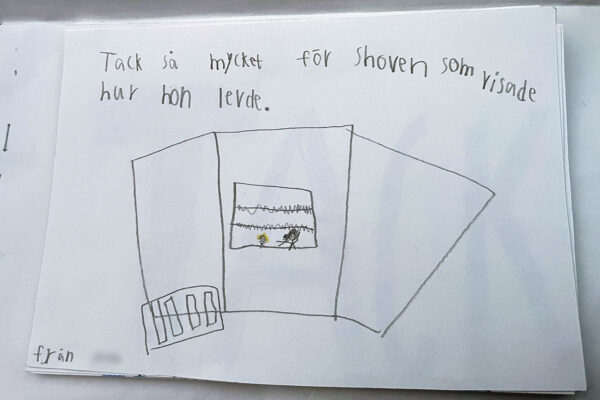 Tack så mycket för shoven som visade
hur hon levde.
från